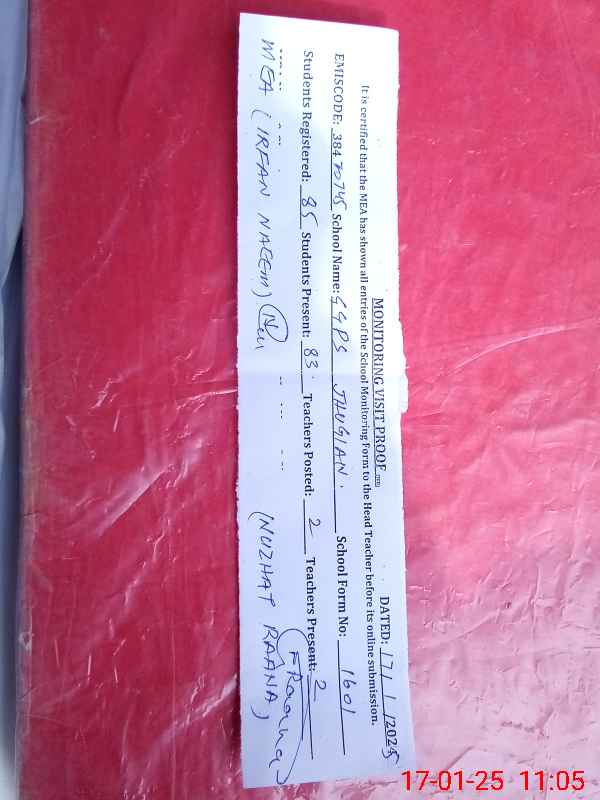 MONITORING VISIT PROOF
DATED: 17/1/2025
It is certified that the MEA has shown all entries of the School Monitoring Form to the Head Teacher before its online submission.
EMISCODE: 38470745 School Name: GGPS JHUGIAN. School Form No: 1601
Students Registered: 85 Students Present: 83. Teachers Posted: 2 Teachers Present: 2
MEA (IRFAN NAEEM)
(NUZHAT RAANA)
17-01-25 11:05